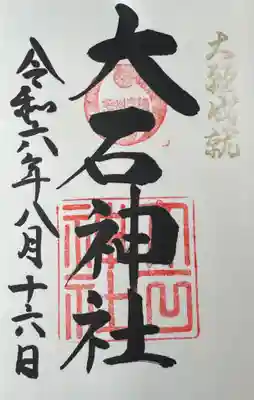 大願成就
大石神社
令和六年八月十六日